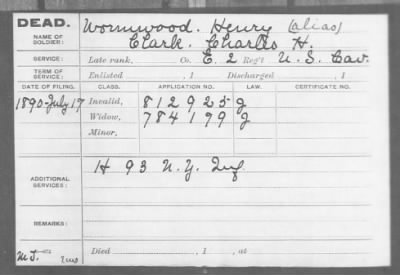 DEAD. Wormwood, Henry (alias)
NAME OF SOLDIER: Clark, Charles H.
SERVICE: Late rank, Co. E. 2 Reg't U. S. Cav.
TERM OF SERVICE: Enlisted , 1 Discharged , 1
DATE OF FILING. CLASS. APPLICATION NO. LAW. CERTIFICATE NO.
1890-July 17 Invalid, 812925 J
Widow, 784179 J
Minor,
ADDITIONAL SERVICES: H 93 N.Y. Inf
REMARKS:
Died , 1 , at